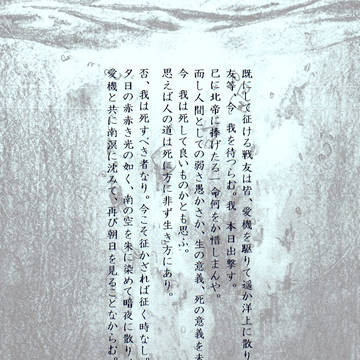 既にして征ける戦友は皆、愛機を駆りて遥か洋上に散り
友等、今 我を待つらむ。我 本日出撃す。
已に北帝に捧げたる一命何をか惜しまんや。
而し人間としての弱さ愚かさか、生の意義、死の意義を未
今 我は死して良いものかとも思ふ。
思えば人の道は死に方に非ず生き方にあり。
否、我は死すべき者なり。今こそ征かざれば征く時なし。
夕日の赤赤き光の如く、南の空を朱に染めて暗夜に散り
愛機と共に南溟に沈みて、再び朝日を見ることなからむ。